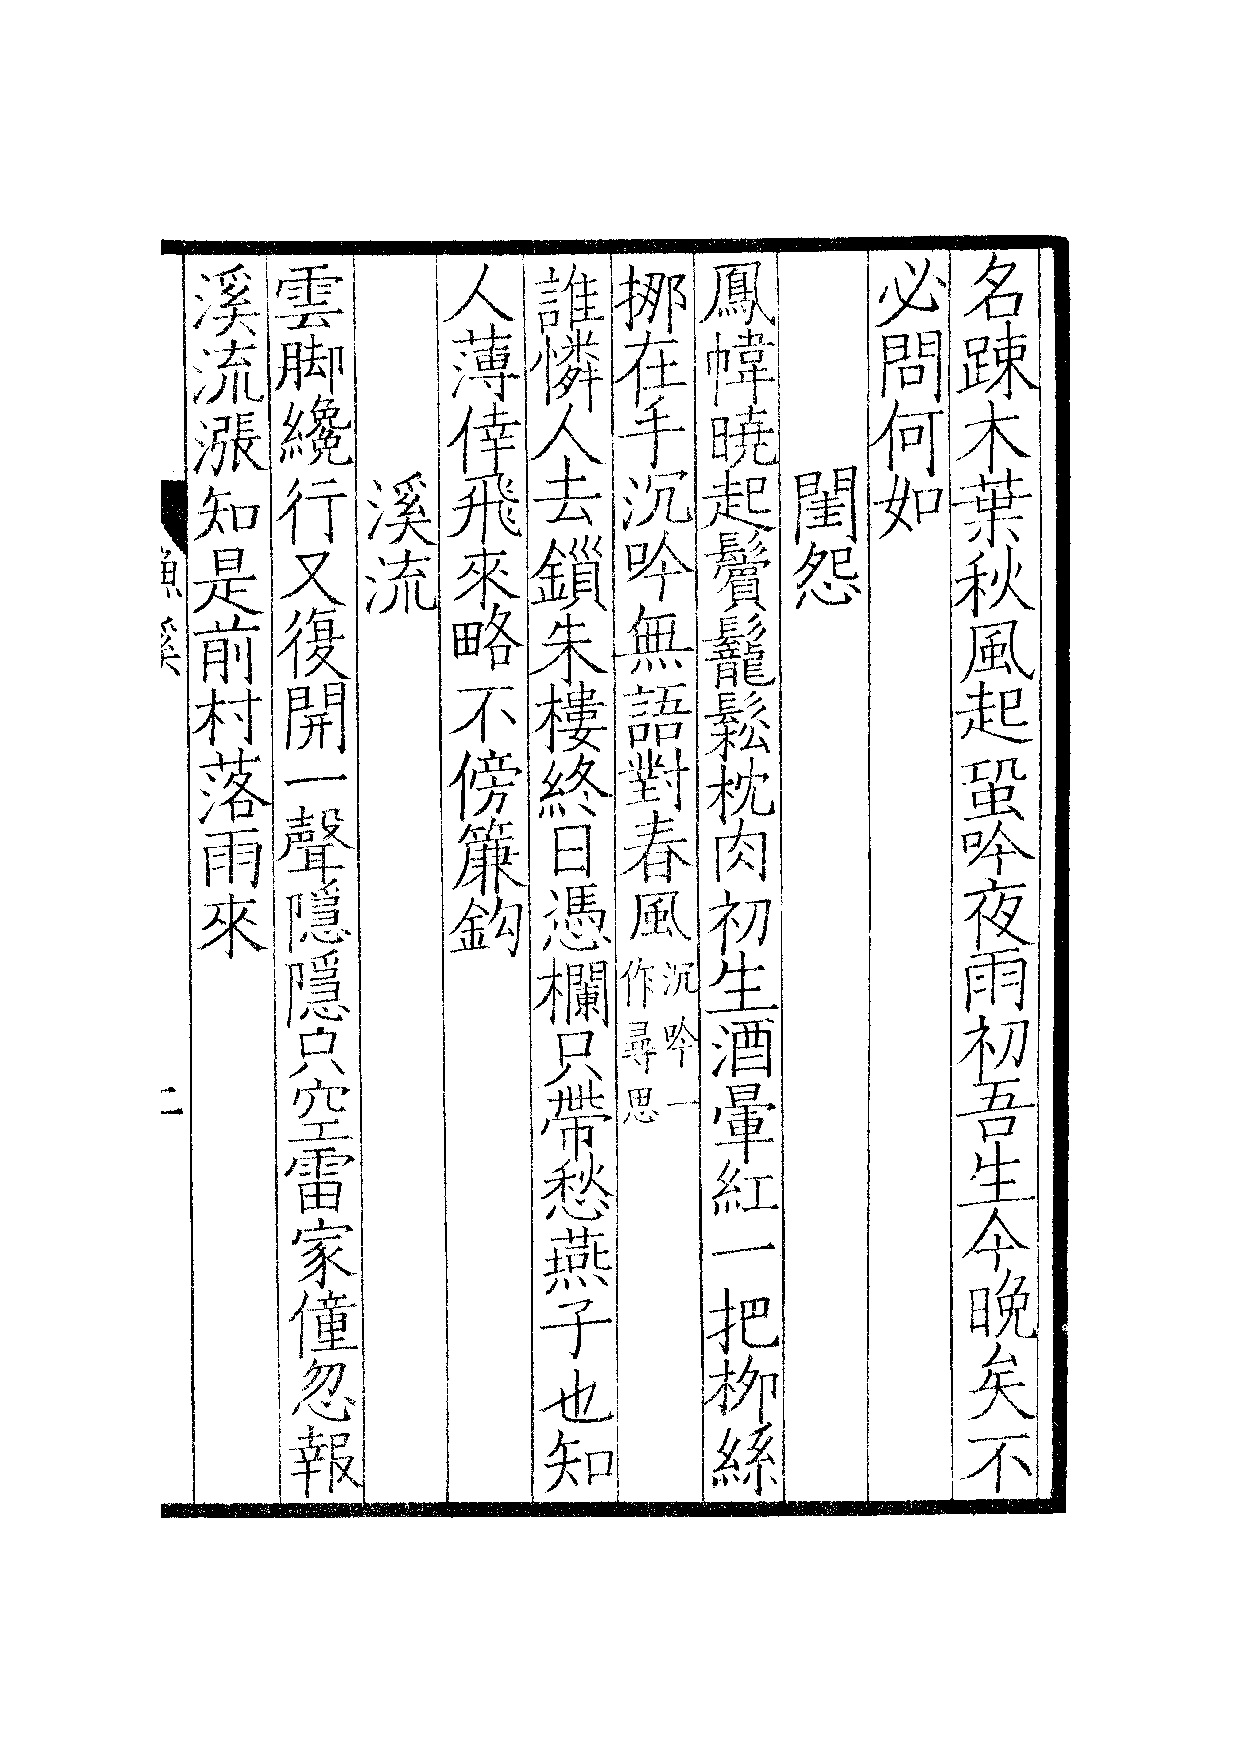 名踈木葉秋風起蛩吟夜雨初吾生今晚矣不
必問何如
閨怨
鳳幃曉起鬢鬆鬆枕肉初生酒暈紅一把柳絲
挪在手沉吟無語對春風沉吟一作尋思
誰憐人去鎻朱樓終日憑欄只帶愁燕子也知
人薄倖飛來略不傍簾鈎
溪流
雲脚纔行又復開一聲隱隱只空雷家僮忽報
溪流漲知是前村落雨來
漁溪
二